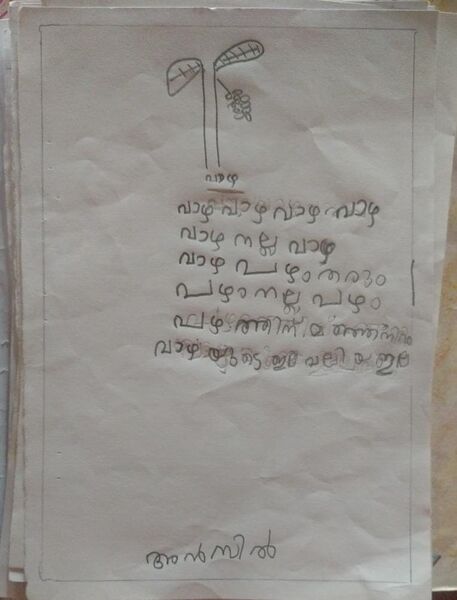 വാഴ
വാഴ വാഴ വാഴ വാഴ
വാഴ നല്ല വാഴ
വാഴ പഴം തരും
പഴം നല്ല പഴം
പഴത്തിന് മഞ്ഞനിറം
വാഴയുടെ ഇല വലിയ ഇല
അൻസിൽ